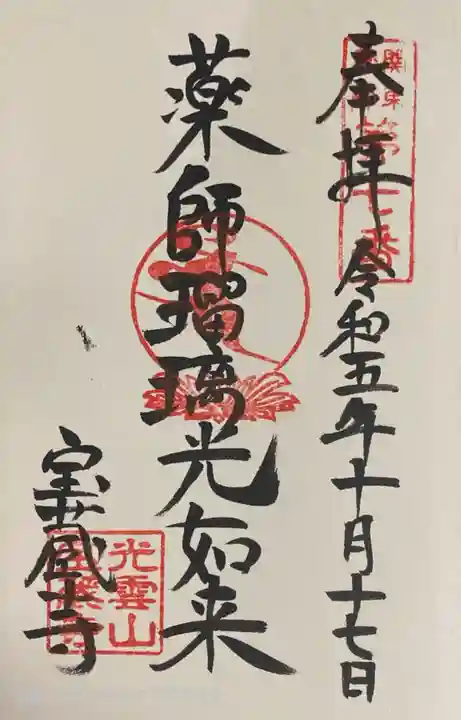 奉拝 令和五年十月十七日
薬師瑠璃光如来
宝蔵寺
光雲山